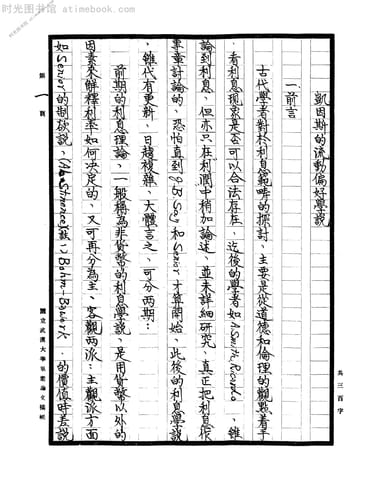 时光图书馆 - atimebook.com
凱因斯的流動偏好學說
一、前言
古代學者對於利息範疇的探討,主要是從道德和倫理的觀點着手
,看利息現象是否可以合法存在,迄後的學者如A Smith, Ricardo,雖
論到利息,但亦只在利潤中稍加論述,並未詳細研究,真正把利息作
專章討論的,恐怕直到J B Say和Senior才算開始,此後的利息學說
,雖代有更新,日趨複雜,大體言之,可分兩期:
前期的利息理論,一般稱為非貨幣的利息學說,是用貨幣以外的
因素來解釋利率如何決定的,又可再分為主、客觀兩派:主觀派方面
如Senior的制欲說,(Abstinence) Bohm-Bawerk的價值時差說
第 1 頁
國立武漢大學畢業論文稿紙
共三百字
时光图书馆 - atimebook.com